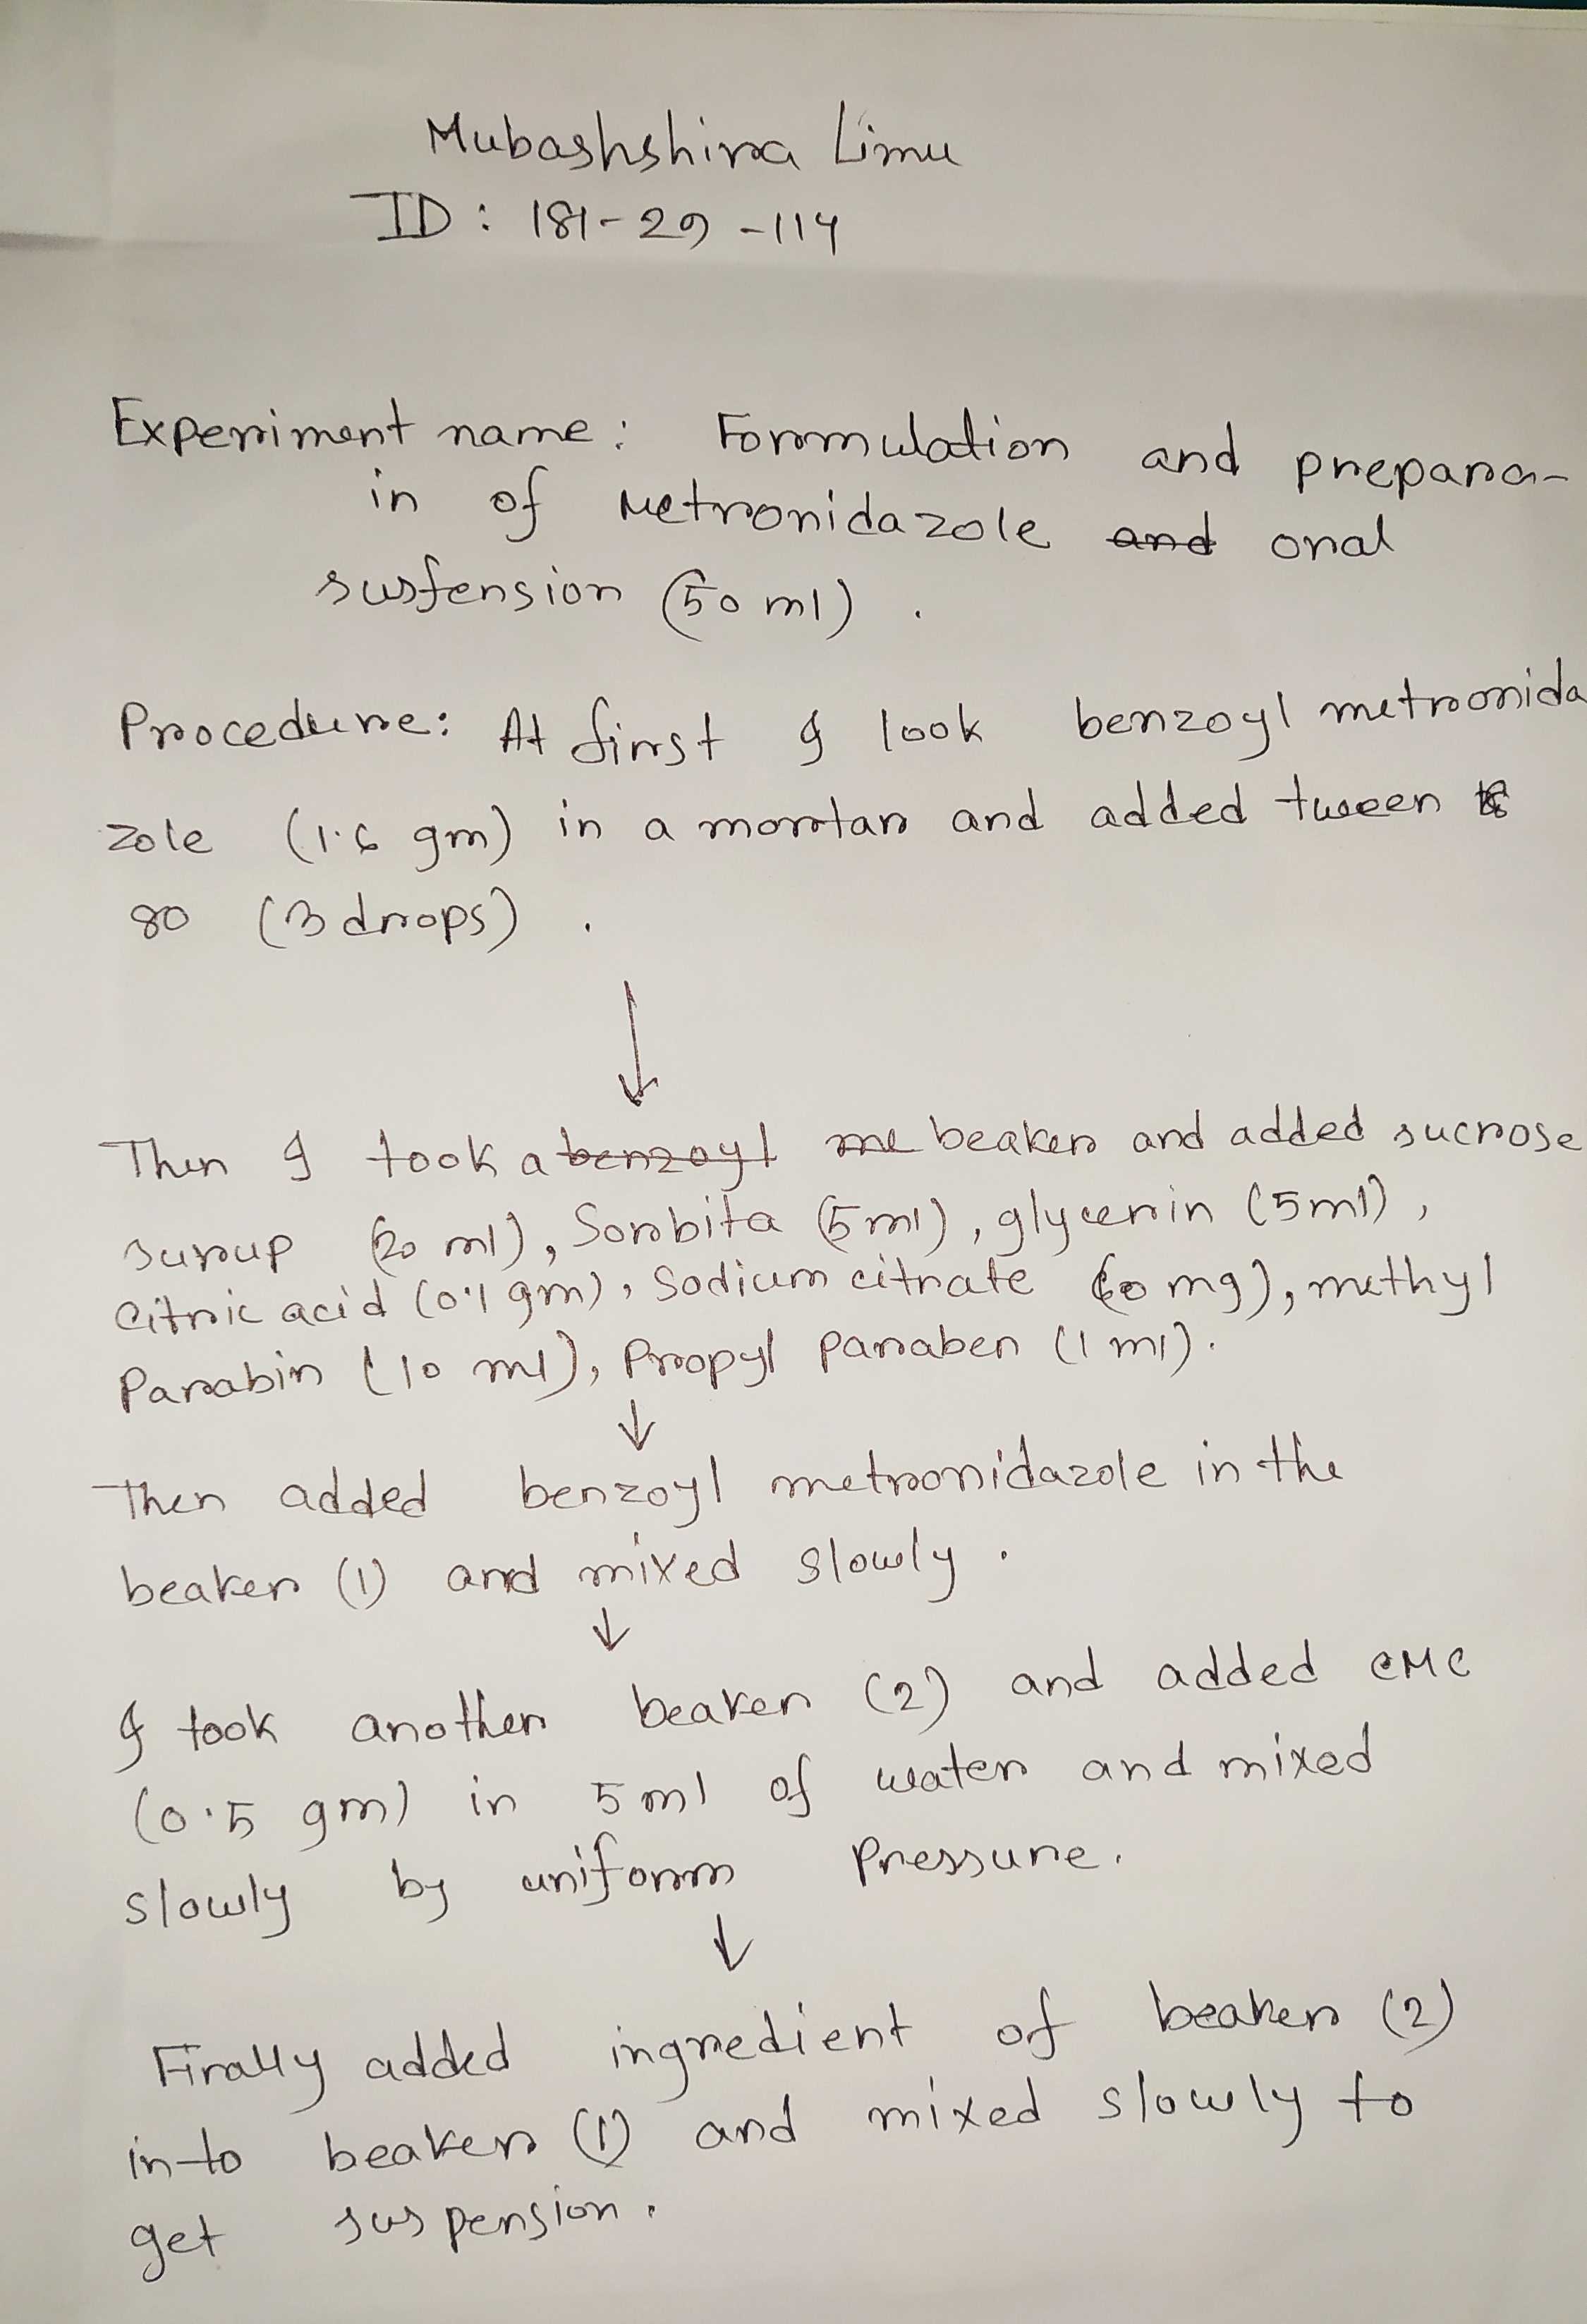 Mubashshira Limu
ID: 181-29-114
Experiment name: Formulation and prepara-
in of Metronidazole and oral
susfension (50 ml).
Procedure: At first I look benzoyl metronida
zole (1.6 gm) in a mortar and added tween
80 (3 drops).
↓
Then I took a benzoyl me beaker and added sucrose
surup (20 ml), Sorbita (5 ml), glycerin (5 ml),
Citric acid (0.1 gm), Sodium citrate (60 mg), methyl
Parabin (10 ml), Propyl paraben (1 ml).
↓
Then added benzoyl metronidazole in the
beaker (1) and mixed slowly.
↓
I took another beaker (2) and added CMC
(0.5 gm) in 5 ml of water and mixed
slowly by uniform Pressure.
↓
Finally added ingredient of beaker (2)
in-to beaker (1) and mixed slowly to
get suspension.